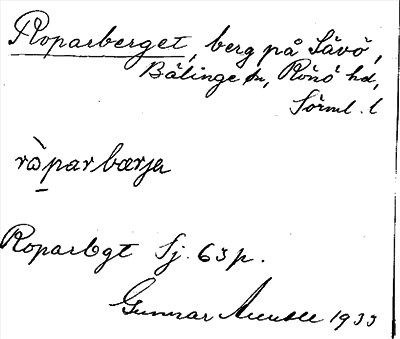 Roparberget, berg på Sävö,
Bälinge sn, Rönö hd,
Sörml. l
ròparbærjə
Roparbgt Sj. 63 p.
Gunnar 1933